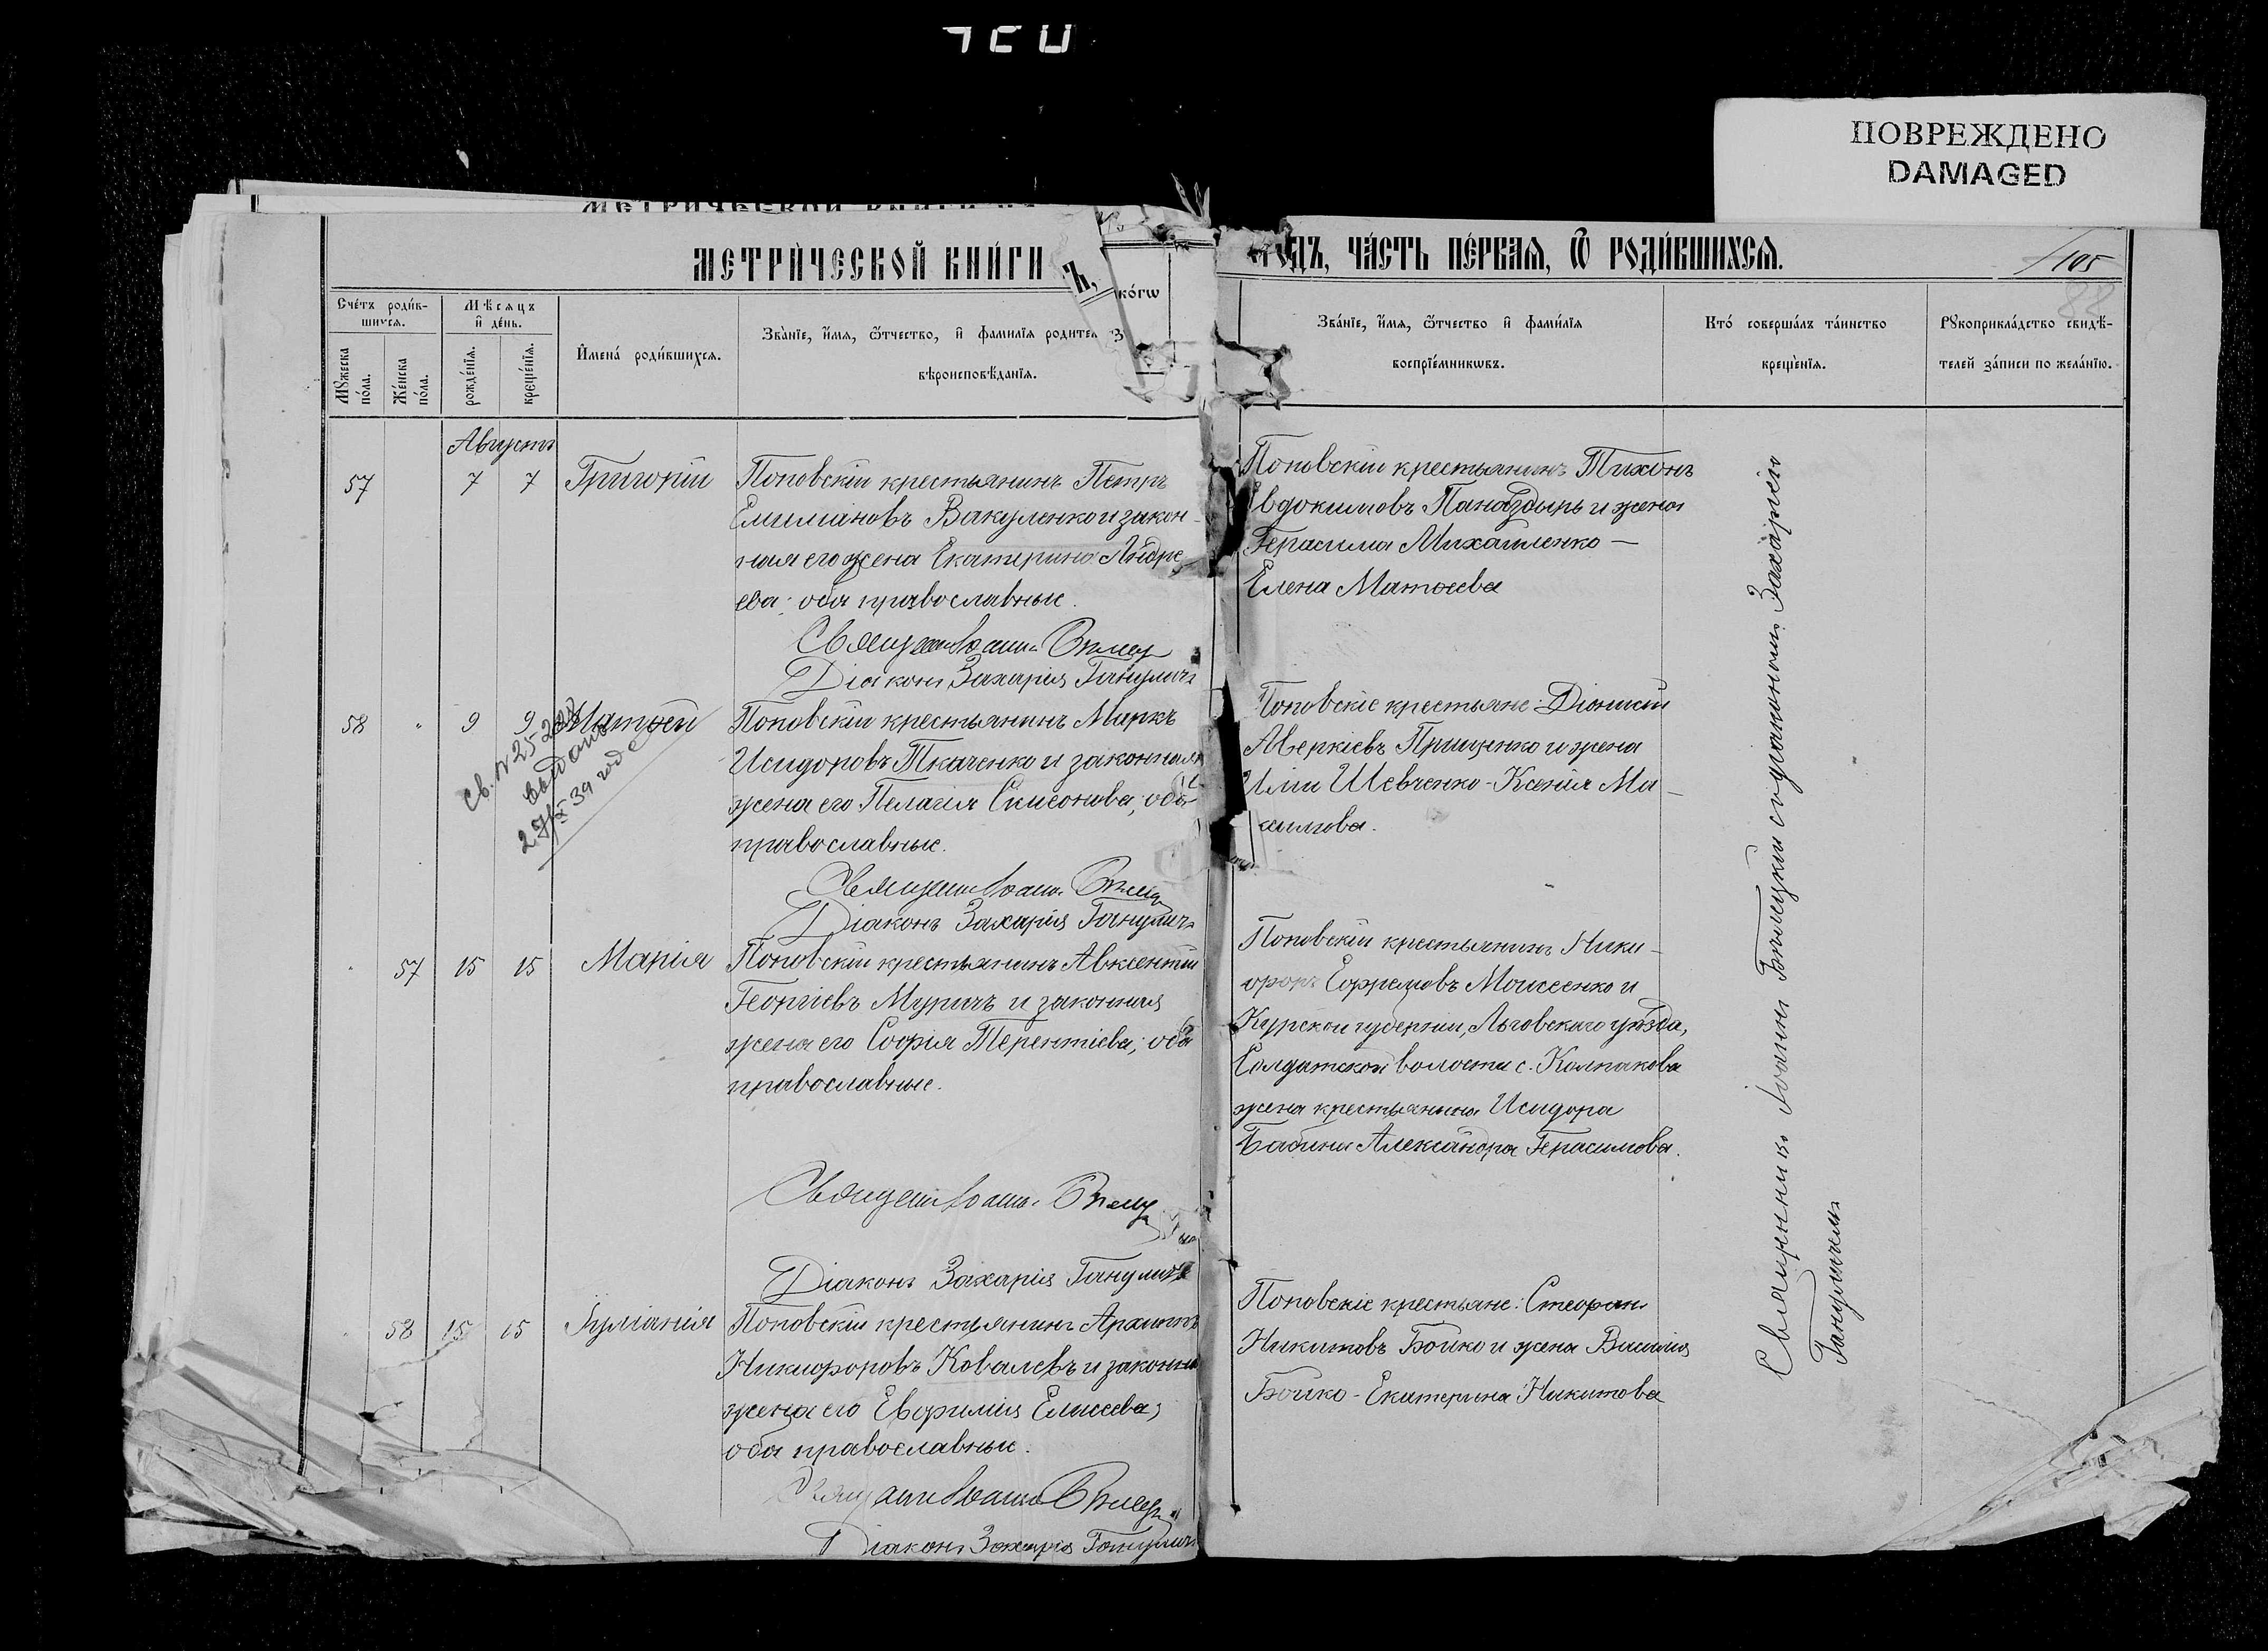 ПОВРЕЖДЕНО
DAMAGED
МЕТРИ́ЧЕСКОЙ КНИ́ГИ
ГОДЪ, ЧА́СТЬ ПЕ́РВАѦ, Ѿ РОДИ́ВШИХСѦ.
105
88
Сче́тъ роди́в-
шихсѧ.
Мꙋ́жеска
по́ла.
Же́нска
по́ла.
Мѣ́сѧцъ
и҆ де́нь.
рожде́нїѧ.
креще́нїѧ.
И҆мена̀ роди́вшихсѧ.
Зва́нїе, и҆́мѧ, ѻ҆́тчество, и҆ фами́лїѧ родител
вѣроисповѣ́данїѧ.
ко́гѡ
Зва́нїе, и҆́мѧ, ѻ҆́тчество и҆ фами́лїѧ
воспрїе́мникѡвъ.
Кто́ соверша́лъ та́инство
креще́нїѧ.
Рꙋкоприкла́дство свидѣ́-
телей за́писи по жела́нїю.
Августъ
57 7 7 Григорій
Поповскій крестьянинъ Петръ
Емиліановъ Вакуленко и закон-
ная его жена Екатерина Андре-
ева; оба православные.
Діаконъ Захарія Ганулич
Поповскій крестьянинъ Тихонъ
Евдокимовъ Паназдырь и жена
Герасима Михайленко —
Елена Матѳеева
58 " 9 9 Матѳей
Св. №
выдано
27/X 39 года
Поповскій крестьянинъ Маркъ
Исидоровъ Ткаченко и законная
жена его Пелагія Симеонова; оба
православные.
Діаконъ Захарія Гануличъ
Поповскіе крестьяне: Діонисій
Аверкіевъ Прищенко и жена
Иліи Шевченко - Ксенія Ми-
аилова.
" 57 15 15 Марія
Поповскій крестьянинъ Авксентій
Георгіевъ Муричъ и законная
жена его Софія Терентіева; оба
православные.
Діаконъ Захарія Гануличъ
Поповскій крестьянинъ Ники-
форъ Ефремовъ Моисеенко и
Курской губерніи, Льговского уѣзда,
Солдатской волости с. Колпакова
жена крестьянина Исидора
Бабина Александра Герасимова.
" 58 15 15 Іуліанія
Поповскій крестьянинъ Архиппъ
Никифоровъ Ковалевъ и законна
жена его Евфимія Елисеева;
оба православные.
Діаконъ Захарія Ганулич
Поповскіе крестьяне: Стефанъ
Никитовъ Бойко и жена Василія
Бойко - Екатерина Никитова
Священникъ Іоаннъ съ діакономъ Захаріею
Гануличемъ